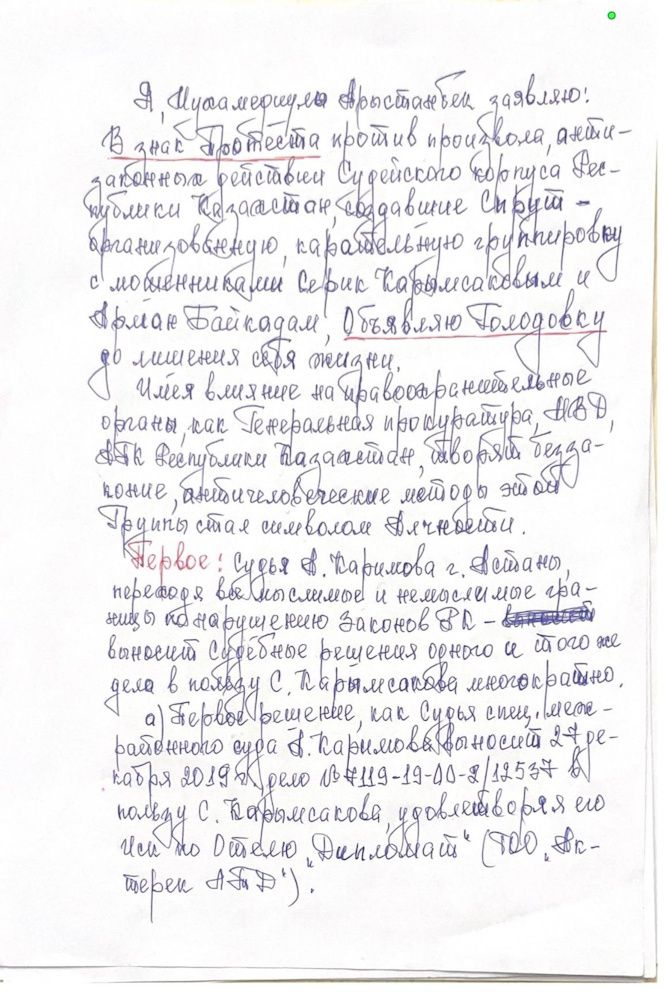 Я, Мухамедиулы Арыстанбек заявляю:
В знак Протеста против произвола, анти-
законных действии Судейского корпуса Рес-
публики Казахстан, создавшие Спрут -
организованную, карательную группировку
с мошенниками Серик Карымсаковым и
Арман Байкадам, Объявляю Голодовку
до лишения себя жизни.
Имея влияние на правоохранительные
органы, как Генеральная прокуратура, МВД,
АПК Республики Казахстан, творят безза-
коние, античеловеческие методы этой
Группы стал символом Алчности.
Первое: Судья А. Каримова г. Астаны,
переходя все мыслимые и немыслимые гра-
ницы по нарушению Законов РК -
выносит Судебные решения одного и того же
дела в пользу С. Карымсакова многократно.
а) Первое решение, как Судья спец. меж-
районного суда А. Каримова выносит 27 де-
кабря 2019 г. дело №7119-19-00-2/12537 в
пользу С. Карымсакова, удовлетворяя его
Иск по Отелю „Дипломат“ (ТОО „Ак-
терек АПД“).